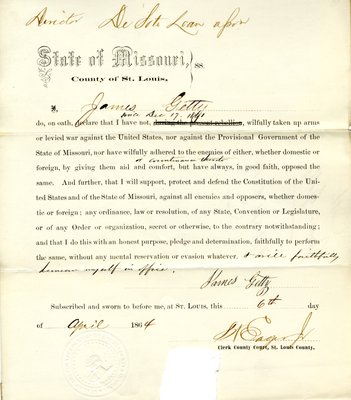 Director De Soto Loan assn
State of Missouri, } ss.
County of St. Louis,
I, James Getty
since Dec 17. 1861
do, on oath, declare that I have not, during the present rebellion, wilfully taken up arms
or levied war against the United States, nor against the Provisional Government of the
State of Missouri, nor have wilfully adhered to the enemies of either, whether domestic or
foreign, by giving them aid and comfort, but have always, in good faith, opposed the
same. And further, that I will support, protect and defend the Constitution of the Uni-
ted States and of the State of Missouri, against all enemies and opposers, whether domes-
tic or foreign; any ordinance, law or resolution, of any State, Convention or Legislature,
or of any Order or organization, secret or otherwise, to the contrary notwithstanding;
and that I do this with an honest purpose, pledge and determination, faithfully to perform
the same, without any mental reservation or evasion whatever. & will faithfully
demean myself in office.
James Getty
Subscribed and sworn to before me, at St. Louis, this 6th day
of April 1864
Clerk County Court, St. Louis County.